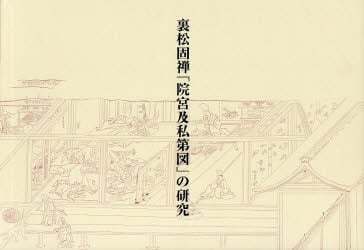 裏松固禅「院宮及私第図」の研究